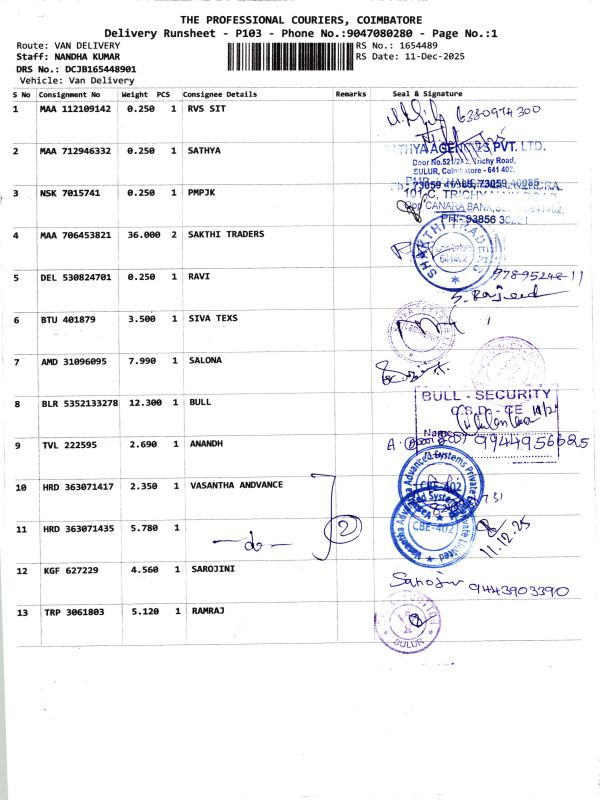 THE PROFESSIONAL COURIERS, COIMBATORE
Delivery Runsheet - P103 - Phone No.:9047080280 - Page No.:1
Route: VAN DELIVERY RS No.: 1654489
Staff: NANDHA KUMAR RS Date: 11-Dec-2025
DRS No.: DCJB165448901
Vehicle: Van Delivery
S No Consignment No Weight PCS Consignee Details Remarks Seal & Signature
1 MAA 112109142 0.250 1 RVS SIT
6380974300
2 MAA 712946332 0.250 1 SATHYA
SATHYA AGENCIES PVT. LTD.
Trichy Road,
SULUR, Coimbatore - 641 402.
3 NSK 7015741 0.250 1 PMPJK
101-C, TRICHY
CANARA BANK,
PH:- 93856
4 MAA 706453821 36.000 2 SAKTHI TRADERS
SHAKTHI TRADE
641402
5 DEL 530824701 0.250 1 RAVI
6 BTU 401879 3.500 1 SIVA TEXS
7 AMD 31096095 7.990 1 SALONA
8 BLR 5352133278 12.300 1 BULL
BULL - SECURITY
Name
9 TVL 222595 2.690 1 ANANDH
9944956685
10 HRD 363071417 2.350 1 VASANTHA ANDVANCE
Vasantha Advanced Systems Private Limited
CBE-402
11 HRD 363071435 5.780 1
-do- 2
CBE-402
11.12.25
12 KGF 627229 4.560 1 SAROJINI
9443903390
13 TRP 3061803 5.120 1 RAMRAJ
SULUR